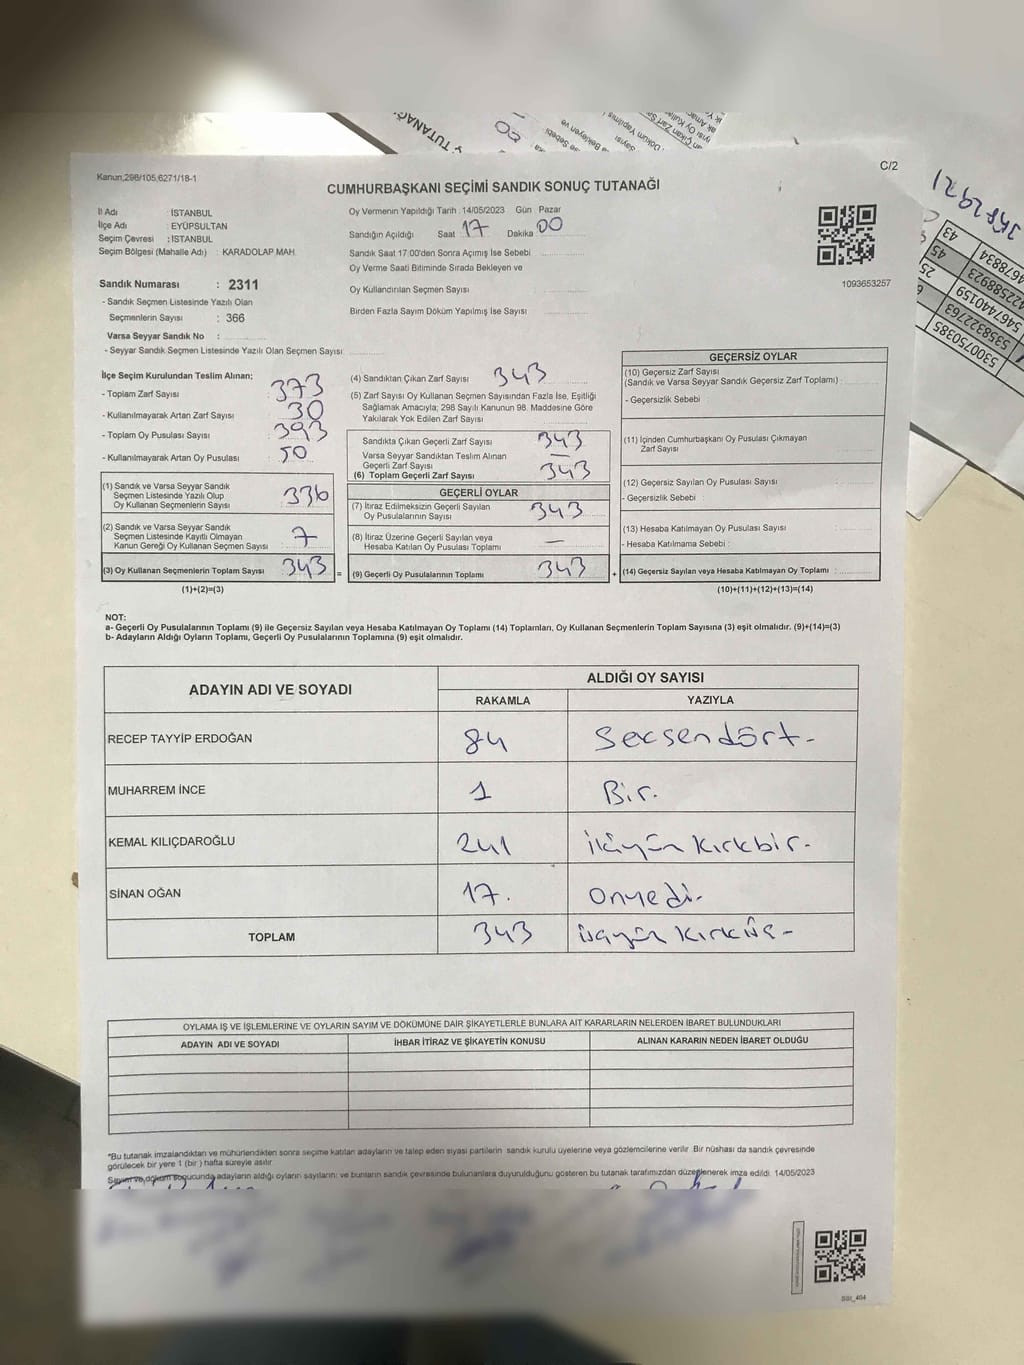 C/2
Kanun,298/105,6271/18-1
CUMHURBAŞKANI SEÇİMİ SANDIK SONUÇ TUTANAĞI
İl Adı : İSTANBUL
İlçe Adı : EYÜPSULTAN
Seçim Çevresi : İSTANBUL
Seçim Bölgesi (Mahalle Adı) : KARADOLAP MAH.
Sandık Numarası : 2311
- Sandık Seçmen Listesinde Yazılı Olan
Seçmenlerin Sayısı : 366
Varsa Seyyar Sandık No :
- Seyyar Sandık Seçmen Listesinde Yazılı Olan Seçmen Sayısı:
Oy Vermenin Yapıldığı Tarih : 14/05/2023 Gün Pazar
Sandığın Açıldığı Saat 17 Dakika 00
Sandık Saat 17:00'den Sonra Açılmış İse Sebebi
Oy Verme Saati Bitiminde Sırada Bekleyen ve
Oy Kullandırılan Seçmen Sayısı
Birden Fazla Sayım Döküm Yapılmış İse Sayısı
1093653257
İlçe Seçim Kurulundan Teslim Alınan;
- Toplam Zarf Sayısı : 373
- Kullanılmayarak Artan Zarf Sayısı : 30
- Toplam Oy Pusulası Sayısı : 393
- Kullanılmayarak Artan Oy Pusulası : 50
(1) Sandık ve Varsa Seyyar Sandık
Seçmen Listesinde Yazılı Olup
Oy Kullanan Seçmenlerin Sayısı : 336
(2) Sandık ve Varsa Seyyar Sandık
Seçmen Listesinde Kayıtlı Olmayan
Kanun Gereği Oy Kullanan Seçmen Sayısı : 7
(3) Oy Kullanan Seçmenlerin Toplam Sayısı : 343 =
(1)+(2)=(3)
(4) Sandıktan Çıkan Zarf Sayısı 343
(5) Zarf Sayısı Oy Kullanan Seçmen Sayısından Fazla İse, Eşitliği
Sağlamak Amacıyla; 298 Sayılı Kanunun 98. Maddesine Göre
Yakılarak Yok Edilen Zarf Sayısı :
Sandıkta Çıkan Geçerli Zarf Sayısı : 343
Varsa Seyyar Sandıktan Teslim Alınan
Geçerli Zarf Sayısı : —
(6) Toplam Geçerli Zarf Sayısı : 343
GEÇERLİ OYLAR
(7) İtiraz Edilmeksizin Geçerli Sayılan
Oy Pusulalarının Sayısı : 343
(8) İtiraz Üzerine Geçerli Sayılan veya
Hesaba Katılan Oy Pusulası Toplamı : —
(9) Geçerli Oy Pusulalarının Toplamı : 343 +
GEÇERSİZ OYLAR
(10) Geçersiz Zarf Sayısı
(Sandık ve Varsa Seyyar Sandık Geçersiz Zarf Toplamı) :
- Geçersizlik Sebebi :
(11) İçinden Cumhurbaşkanı Oy Pusulası Çıkmayan
Zarf Sayısı :
(12) Geçersiz Sayılan Oy Pusulası Sayısı :
- Geçersizlik Sebebi :
(13) Hesaba Katılmayan Oy Pusulası Sayısı :
- Hesaba Katılmama Sebebi :
(14) Geçersiz Sayılan veya Hesaba Katılmayan Oy Toplamı :
(10)+(11)+(12)+(13)=(14)
NOT:
a- Geçerli Oy Pusulalarının Toplamı (9) ile Geçersiz Sayılan veya Hesaba Katılmayan Oy Toplamı (14) Toplamları, Oy Kullanan Seçmenlerin Toplam Sayısına (3) eşit olmalıdır. (9)+(14)=(3)
b- Adayların Aldığı Oyların Toplamı, Geçerli Oy Pusulalarının Toplamına (9) eşit olmalıdır.
ADAYIN ADI VE SOYADI ALDIĞI OY SAYISI
RAKAMLA YAZIYLA
RECEP TAYYİP ERDOĞAN 84 Secsendört-
MUHARREM İNCE 1 Bir.
KEMAL KILIÇDAROĞLU 241 ikiyün kırkbir-
SİNAN OĞAN 17. onyedi-
TOPLAM 343 üçyün kırküç-
OYLAMA İŞ VE İŞLEMLERİNE VE OYLARIN SAYIM VE DÖKÜMÜNE DAİR ŞİKAYETLERLE BUNLARA AİT KARARLARIN NELERDEN İBARET BULUNDUKLARI
ADAYIN ADI VE SOYADI İHBAR İTİRAZ VE ŞİKAYETİN KONUSU ALINAN KARARIN NEDEN İBARET OLDUĞU
*Bu tutanak imzalandıktan ve mühürlendikten sonra seçime katılan adayların ve talep eden siyasi partilerin sandık kurulu üyelerine veya gözlemcilerine verilir. Bir nüshası da sandık çevresinde
görülecek bir yere 1 (bir) hafta süreyle asılır.
Sayım ve döküm sonucunda adayların aldığı oyların sayılarını; ve bunların sandık çevresinde bulunanlara duyurulduğunu gösteren bu tutanak tarafımızdan düzenlenerek imza edildi. 14/05/2023
43
45
25
4678834
422588923
5467440159
5358322763
5300750385